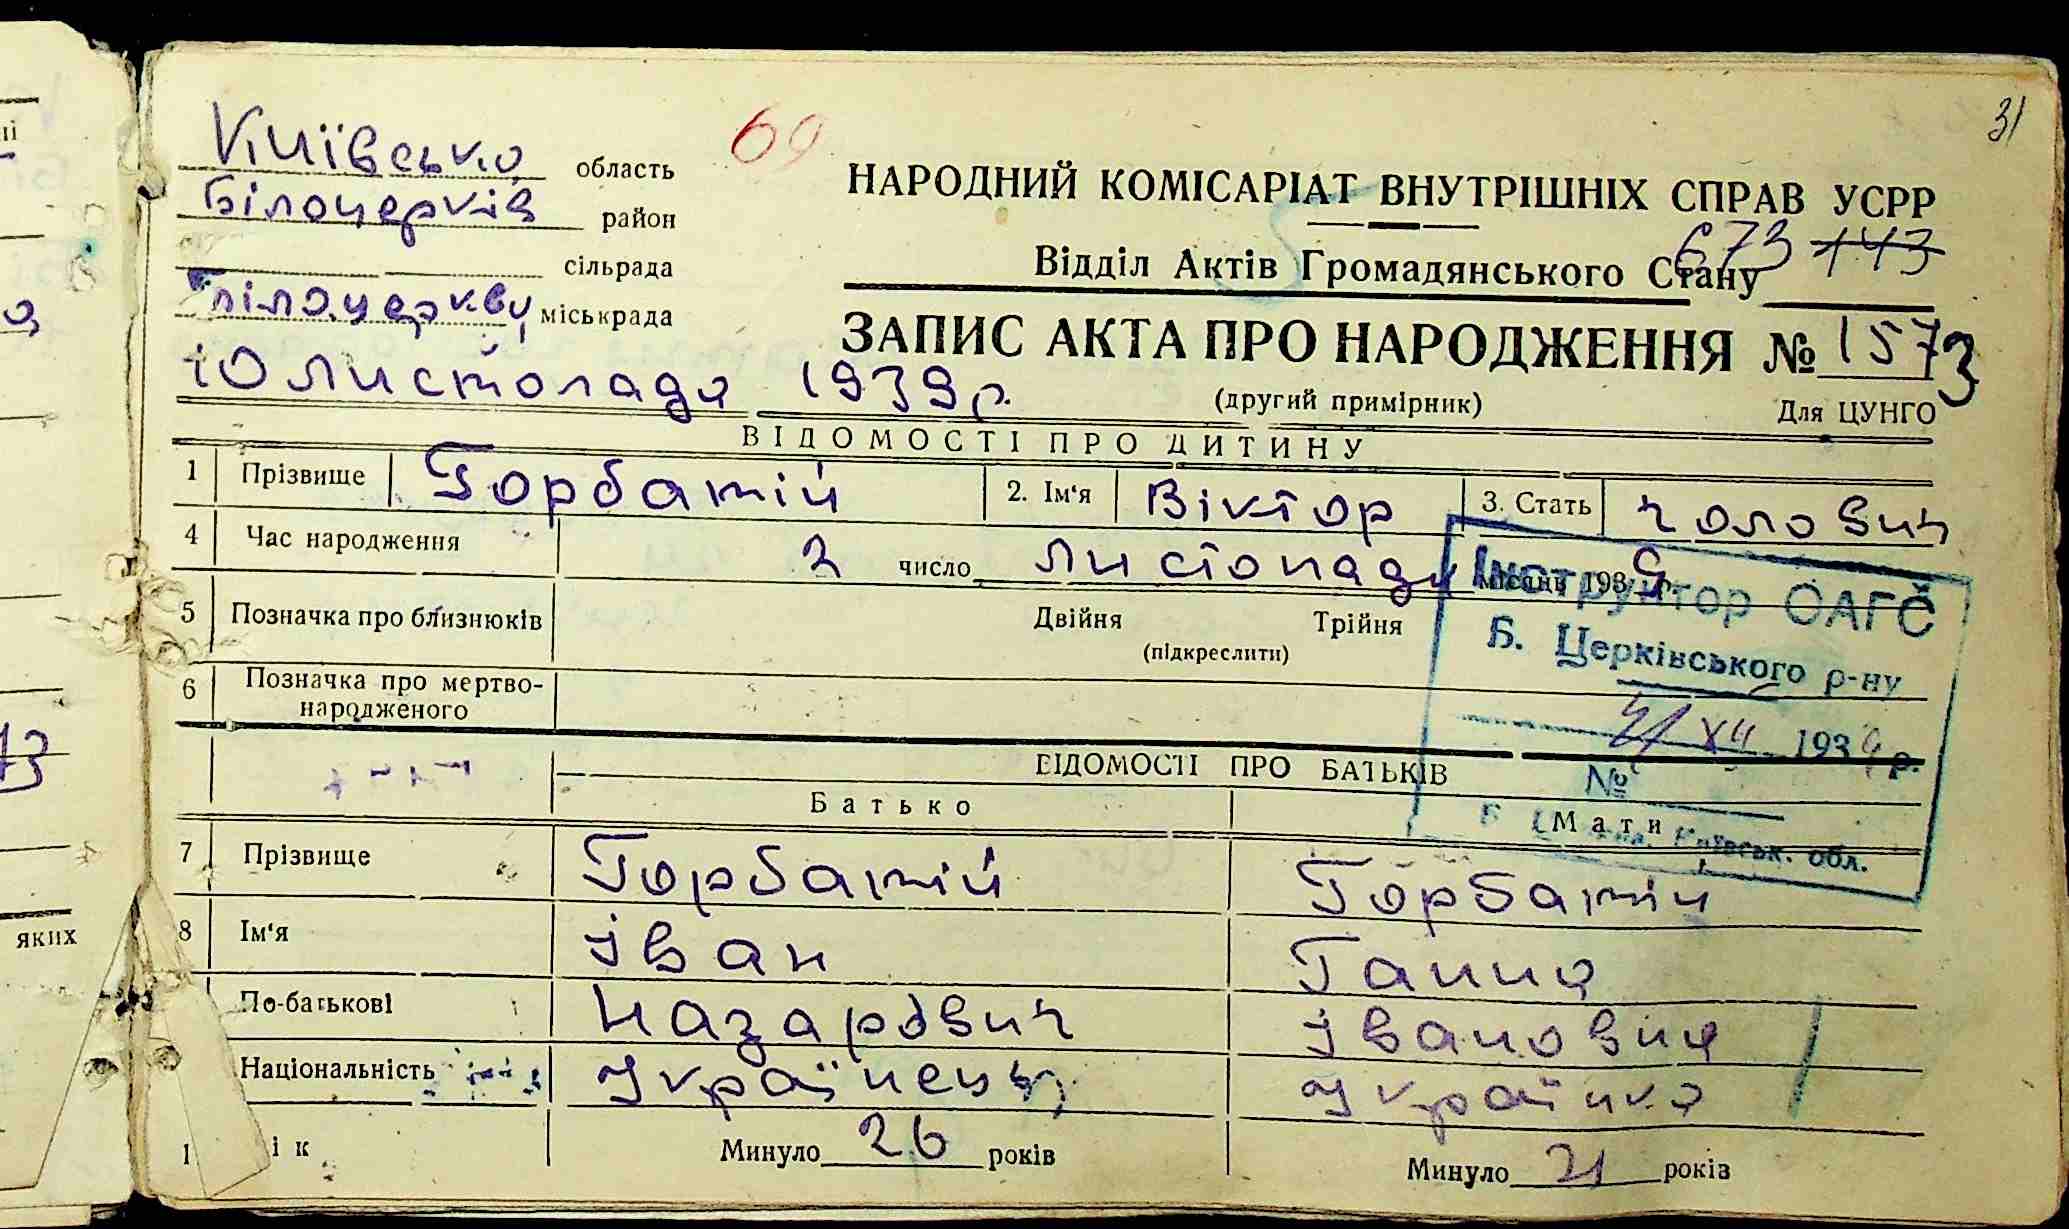 31
69
Київська область
Білоцерків район
сільрада
Білоцеркву міськрада
НАРОДНИЙ КОМІСАРІАТ ВНУТРІШНІХ СПРАВ УСРР
673 143
Відділ Актів Громадянського Стану
ЗАПИС АКТА ПРО НАРОДЖЕННЯ № 1573
10 листопада 1939 р.
(другий примірник) Для ЦУНГО
ВІДОМОСТІ ПРО ДИТИНУ
1 Прізвище Горбатій 2. Ім‘я Віктор 3. Стать чолович
4 Час народження 2 число листопада місяць 1939 р.
5 Позначка про близнюків Двійня Трійня
(підкреслити)
6 Позначка про мертво-
народженого
Інструктор ОАГС
Б. Церківського р-ну
31 XII 1939 р.
№
Київськ. обл.
ВІДОМОСТІ ПРО БАТЬКІВ
Батько Мати
7 Прізвище Горбатій Горбатій
8 Ім‘я Іван Ганна
По-батькові Назарович Івановня
Національність Українець Українка
1 ік Минуло 26 років Минуло 21 років
яких